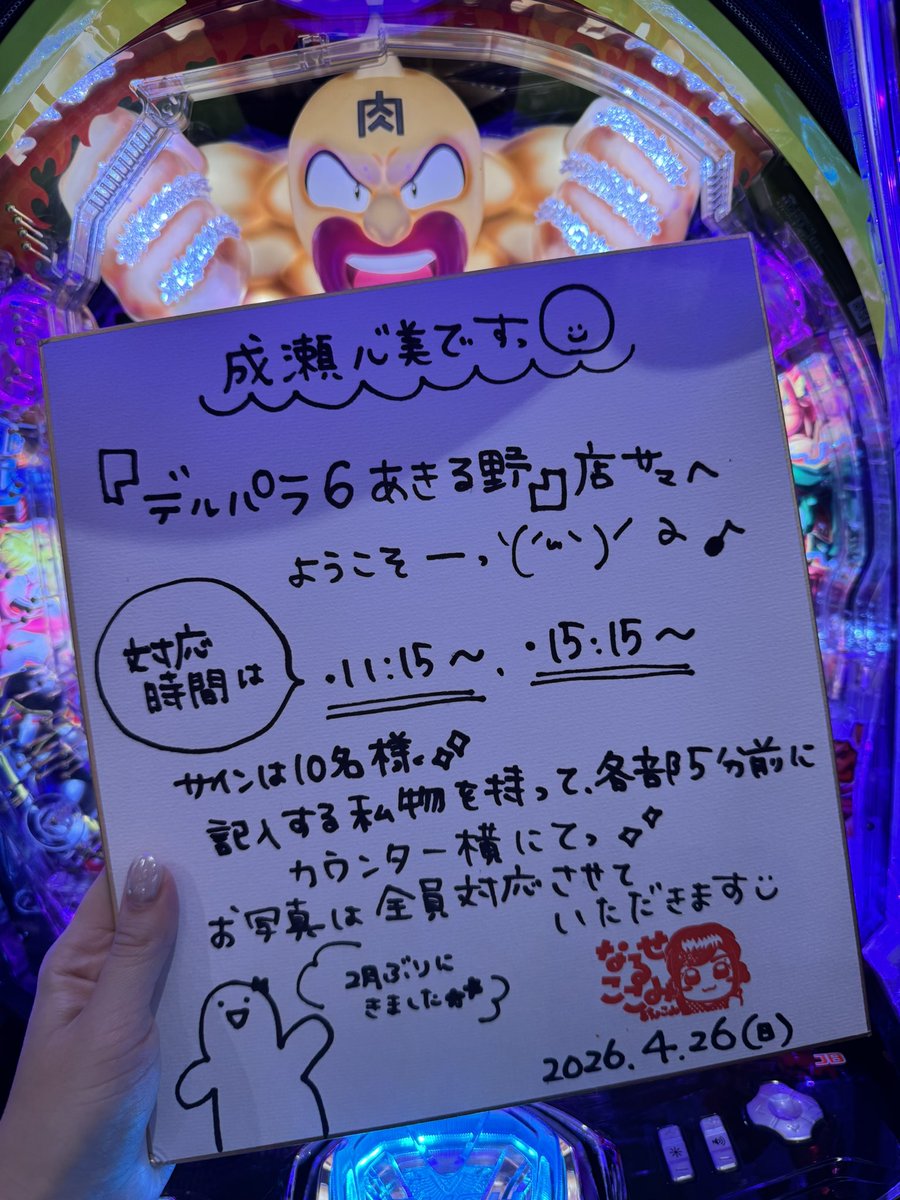 肉
成瀬心美ですっ
『デルパラ6あきる野』店サマへ
ようこそーっ╰(´ω`)╯♪
対応
時間は
・11:15〜、・15:15〜
サインは10名様、
記入する私物を持って、各部5分前に
カウンター横にてっ
お写真は全員対応させて
いただきます
2月ぶりに
きました
なるせ
ここみ
2026.4.26(日)